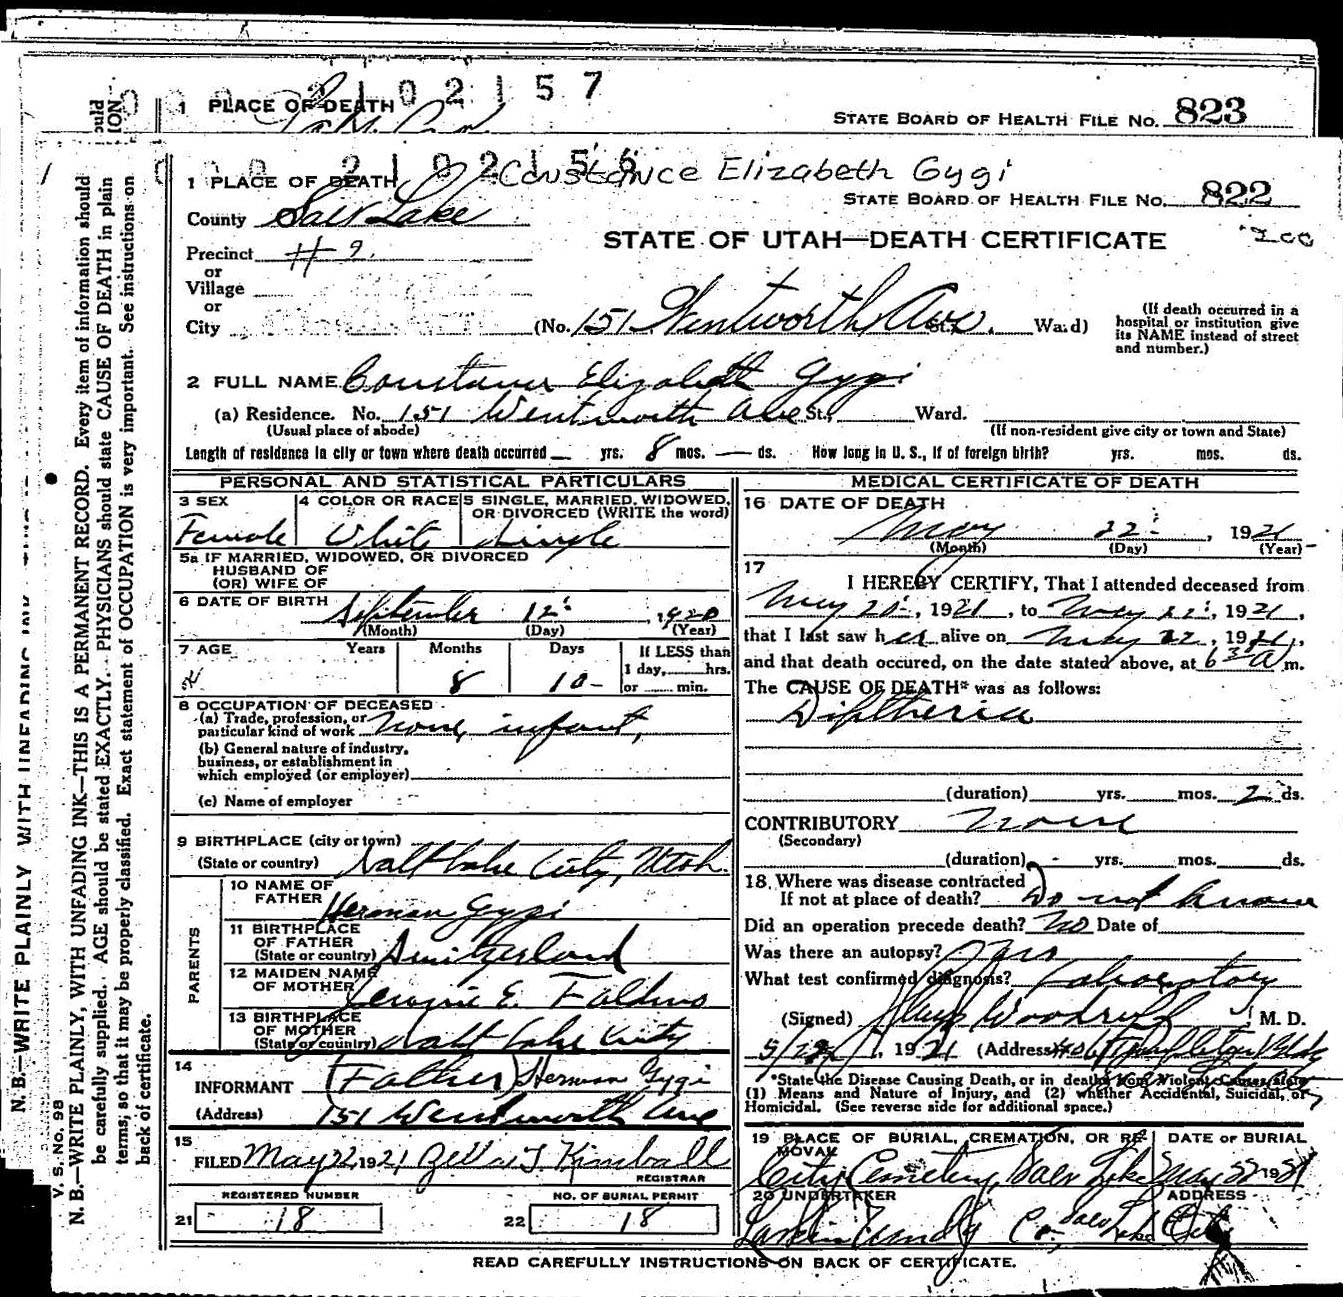 2102157
1 PLACE OF DEATH
STATE BOARD OF HEALTH FILE No. 823
210215
Constance Elizabeth Gygi
1 PLACE OF DEATH
STATE BOARD OF HEALTH FILE No. 822
County Salt Lake
STATE OF UTAH—DEATH CERTIFICATE
Precinct #9.
or
Village
or
City
(No. 151 Wentworth Ave St., Ward)
(If death occurred in a
hospital or institution give
its NAME instead of street
and number.)
2 FULL NAME Constance Elizabeth Gygi
(a) Residence. No. 151 Wentworth Ave St., Ward.
(Usual place of abode)
(If non-resident give city or town and State)
Length of residence in city or town where death occurred — yrs. 8 mos. — ds. How long in U. S., if of foreign birth? yrs. mos. ds.
PERSONAL AND STATISTICAL PARTICULARS
3 SEX
4 COLOR OR RACE
5 SINGLE, MARRIED, WIDOWED,
OR DIVORCED (WRITE the word)
Female White Single
5a IF MARRIED, WIDOWED, OR DIVORCED
HUSBAND OF
(OR) WIFE OF
6 DATE OF BIRTH September 12, 1920
(Month) (Day) (Year)
7 AGE Years Months Days If LESS than
1 day, hrs.
or min.
8 10-
8 OCCUPATION OF DECEASED
(a) Trade, profession, or
particular kind of work None, infant,
(b) General nature of industry,
business, or establishment in
which employed (or employer)
(c) Name of employer
9 BIRTHPLACE (city or town)
(State or country) Salt Lake City, Utah.
PARENTS
10 NAME OF
FATHER Herman Gygi
11 BIRTHPLACE
OF FATHER
(State or country) Switzerland
12 MAIDEN NAME
OF MOTHER E.
13 BIRTHPLACE
OF MOTHER
(State or country) Salt Lake City
14
INFORMANT (Father) Herman Gygi
(Address) 151 Wentworth Ave
15
FILED May 22, 1921 Kimball
REGISTRAR
REGISTERED NUMBER
21 18
NO. OF BURIAL PERMIT
22 18
MEDICAL CERTIFICATE OF DEATH
16 DATE OF DEATH
May 22, 1921
(Month) (Day) (Year)
17
I HEREBY CERTIFY, That I attended deceased from
May 20, 1921, to May 22, 1921,
that I last saw her alive on May 22, 1921,
and that death occured, on the date stated above, at 6 30 A m.
The CAUSE OF DEATH* was as follows:
Diptheria
(duration) yrs. mos. 2 ds.
CONTRIBUTORY None
(Secondary)
(duration) yrs. mos. ds.
18. Where was disease contracted
If not at place of death? Do not know
Did an operation precede death? No Date of
Was there an autopsy?
What test confirmed diagnosis? Laboratory
(Signed) Woodruff, M. D.
5/22, 1921 (Address) 406 Templeton Bldg
*State the Disease Causing Death, or in deaths from Violent Causes, state
(1) Means and Nature of Injury, and (2) whether Accidental, Suicidal, or
Homicidal. (See reverse side for additional space.)
19 PLACE OF BURIAL, CREMATION, OR RE-
MOVAL
DATE OF BURIAL
City Cemetery, Salt Lake May 22 1921
20 UNDERTAKER
ADDRESS
Co., Salt Lake City
READ CAREFULLY INSTRUCTIONS ON BACK OF CERTIFICATE.
V. S. No. 98
N. B.—WRITE PLAINLY, WITH UNFADING INK—THIS IS A PERMANENT RECORD. Every item of information should
be carefully supplied. AGE should be stated EXACTLY. PHYSICIANS should state CAUSE OF DEATH in plain
terms, so that it may be properly classified. Exact statement of OCCUPATION is very important. See instructions on
back of certificate.
N. B.—WRITE PLAINLY WITH UNFADING INK